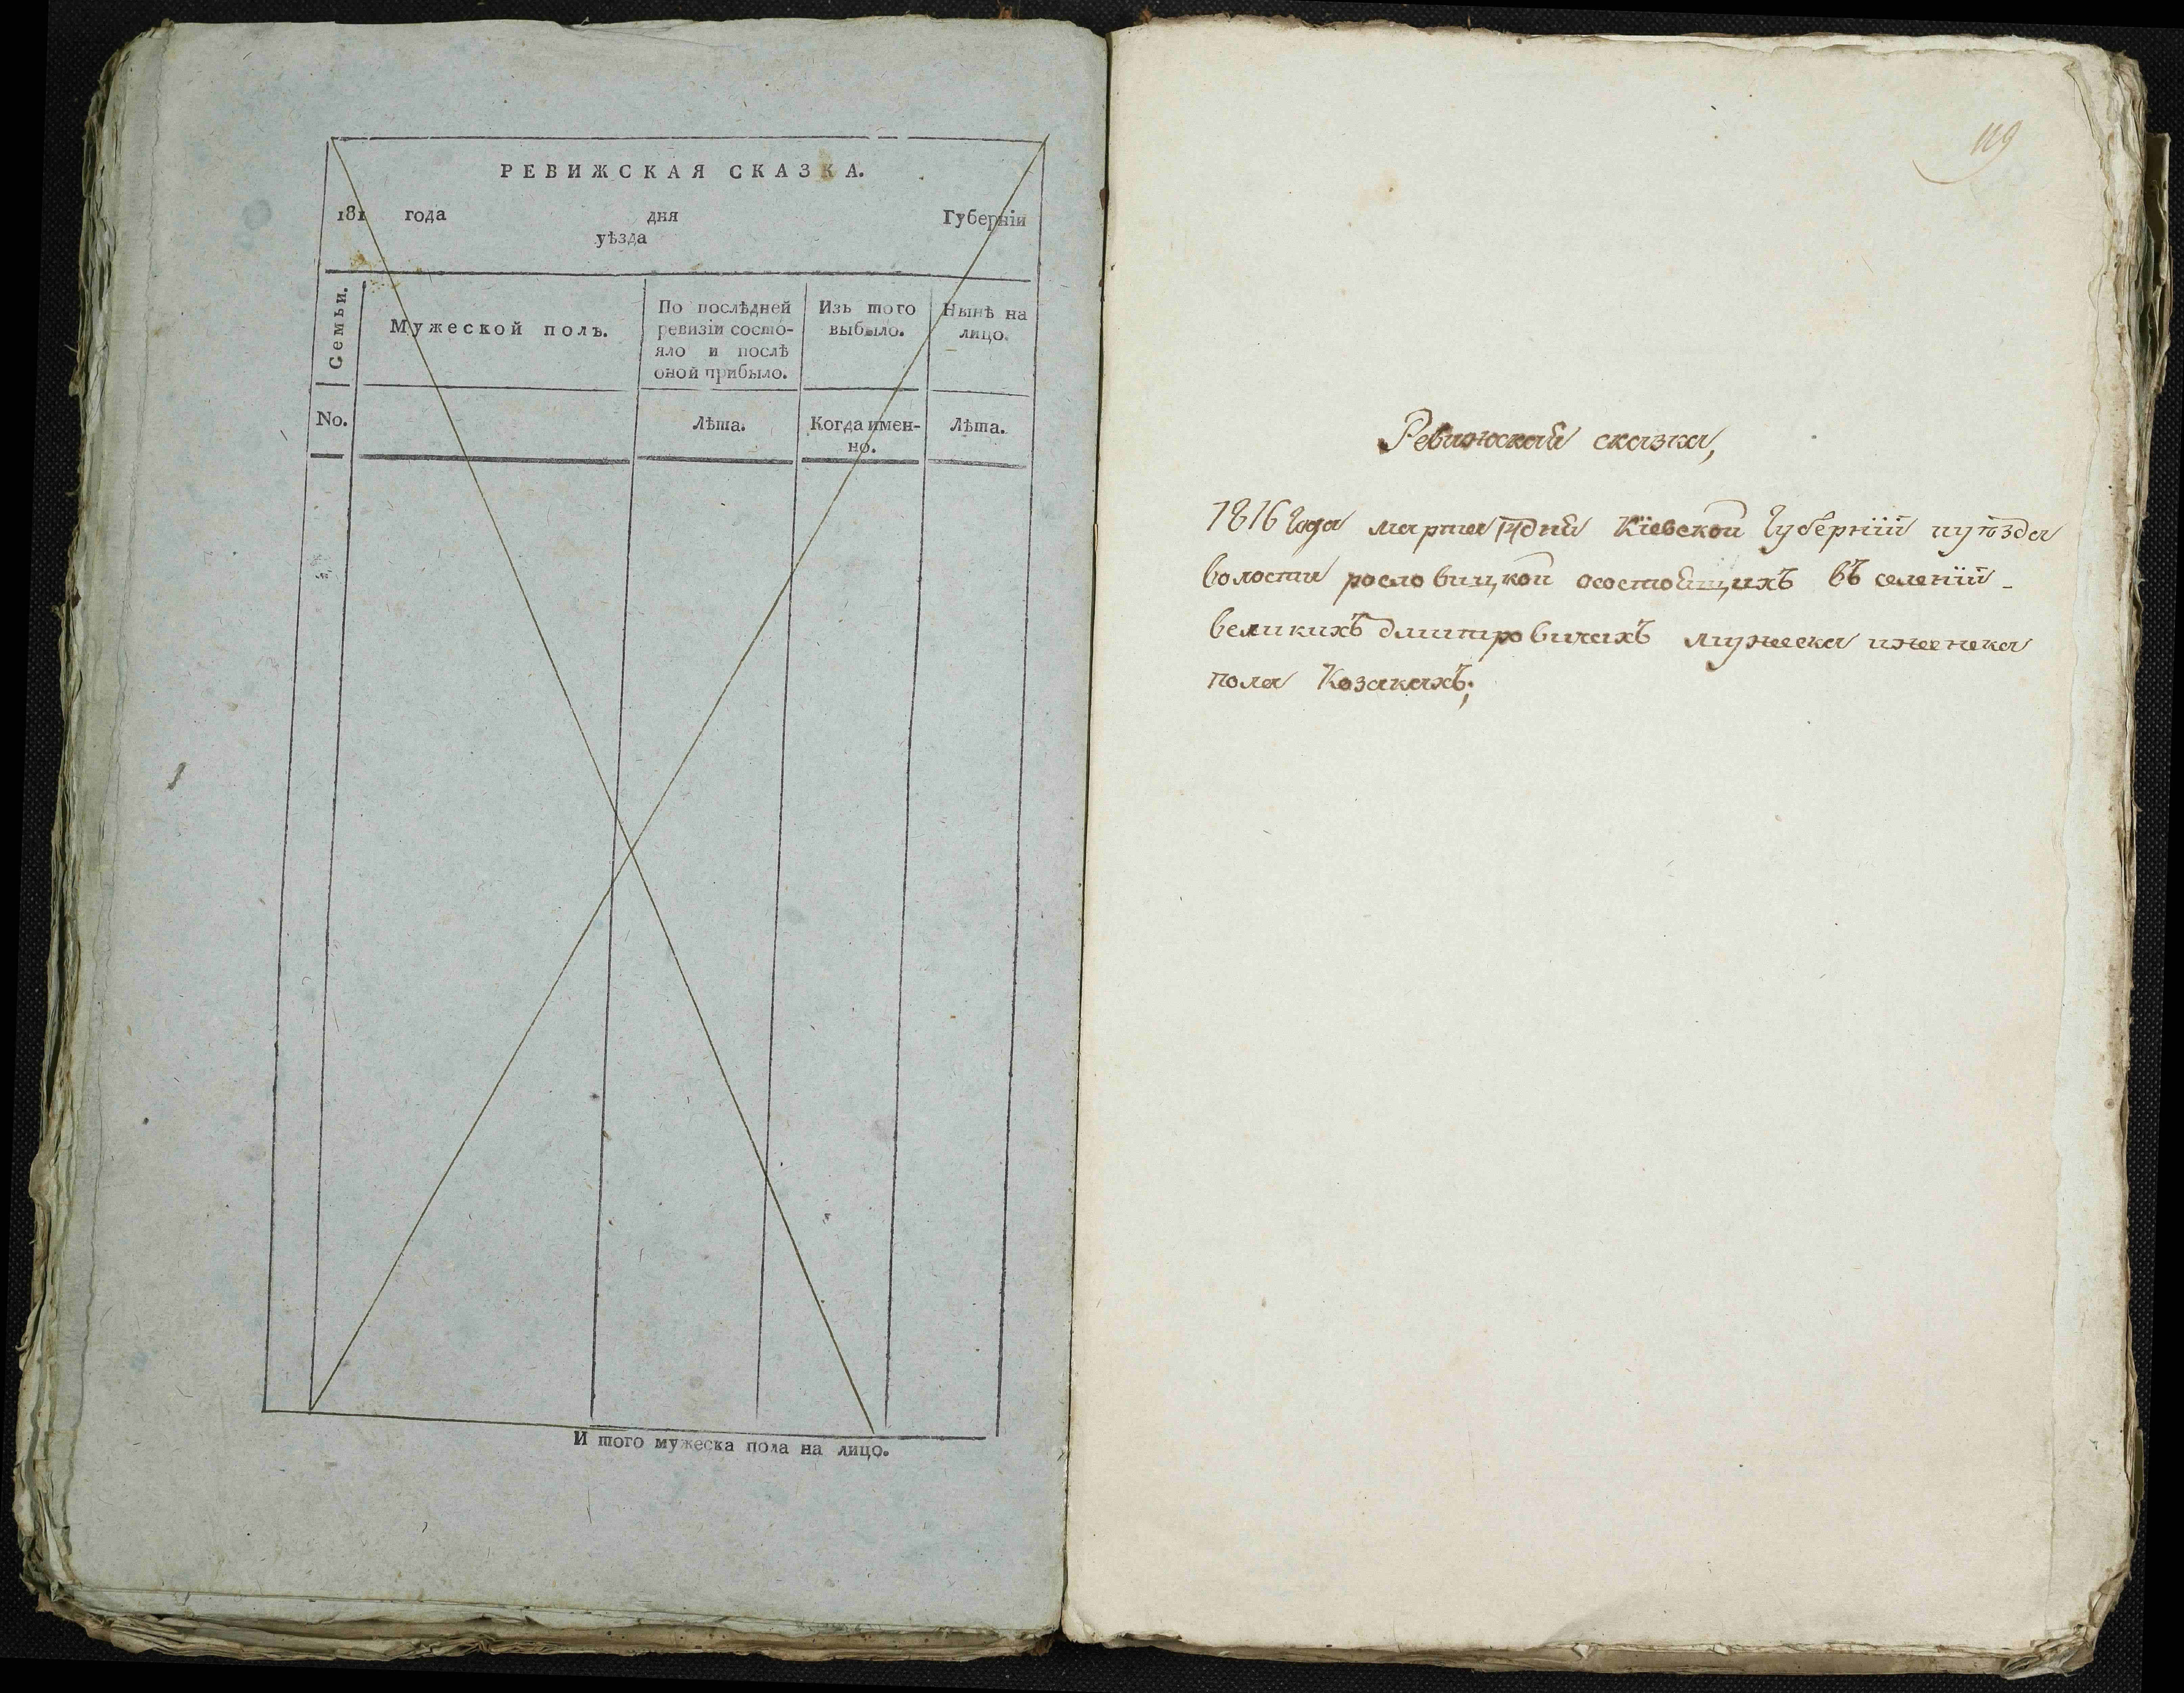 РЕВИЖСКАЯ СКАЗКА.
181 года дня Губернїи
уѣзда
Семьи.
Мужеской полъ.
По послѣдней
ревизїи состо-
яло и послѣ
оной прибыло.
Изъ того
выбыло.
Нынѣ на
лицо.
No.
Лѣта.
Когда имен-
но.
Лѣта.
И того мужеска пола на лицо.
119
Ревижская сказка,
1816 года марта 14 дня Кїевской Губернїи иуѣзда
волости рословицкой осостоящихъ въ селенїи
великихъ дмитровичахъ мужеска иженска
пола Козакахъ;